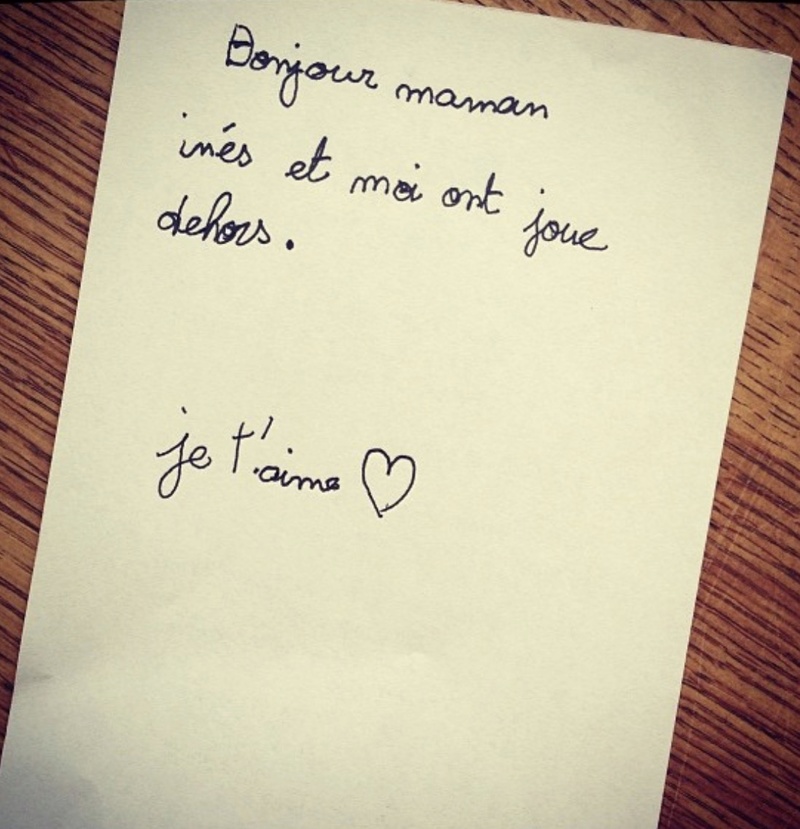 Bonjour maman
inés et moi ont joue
dehors.
je t'aime ♡